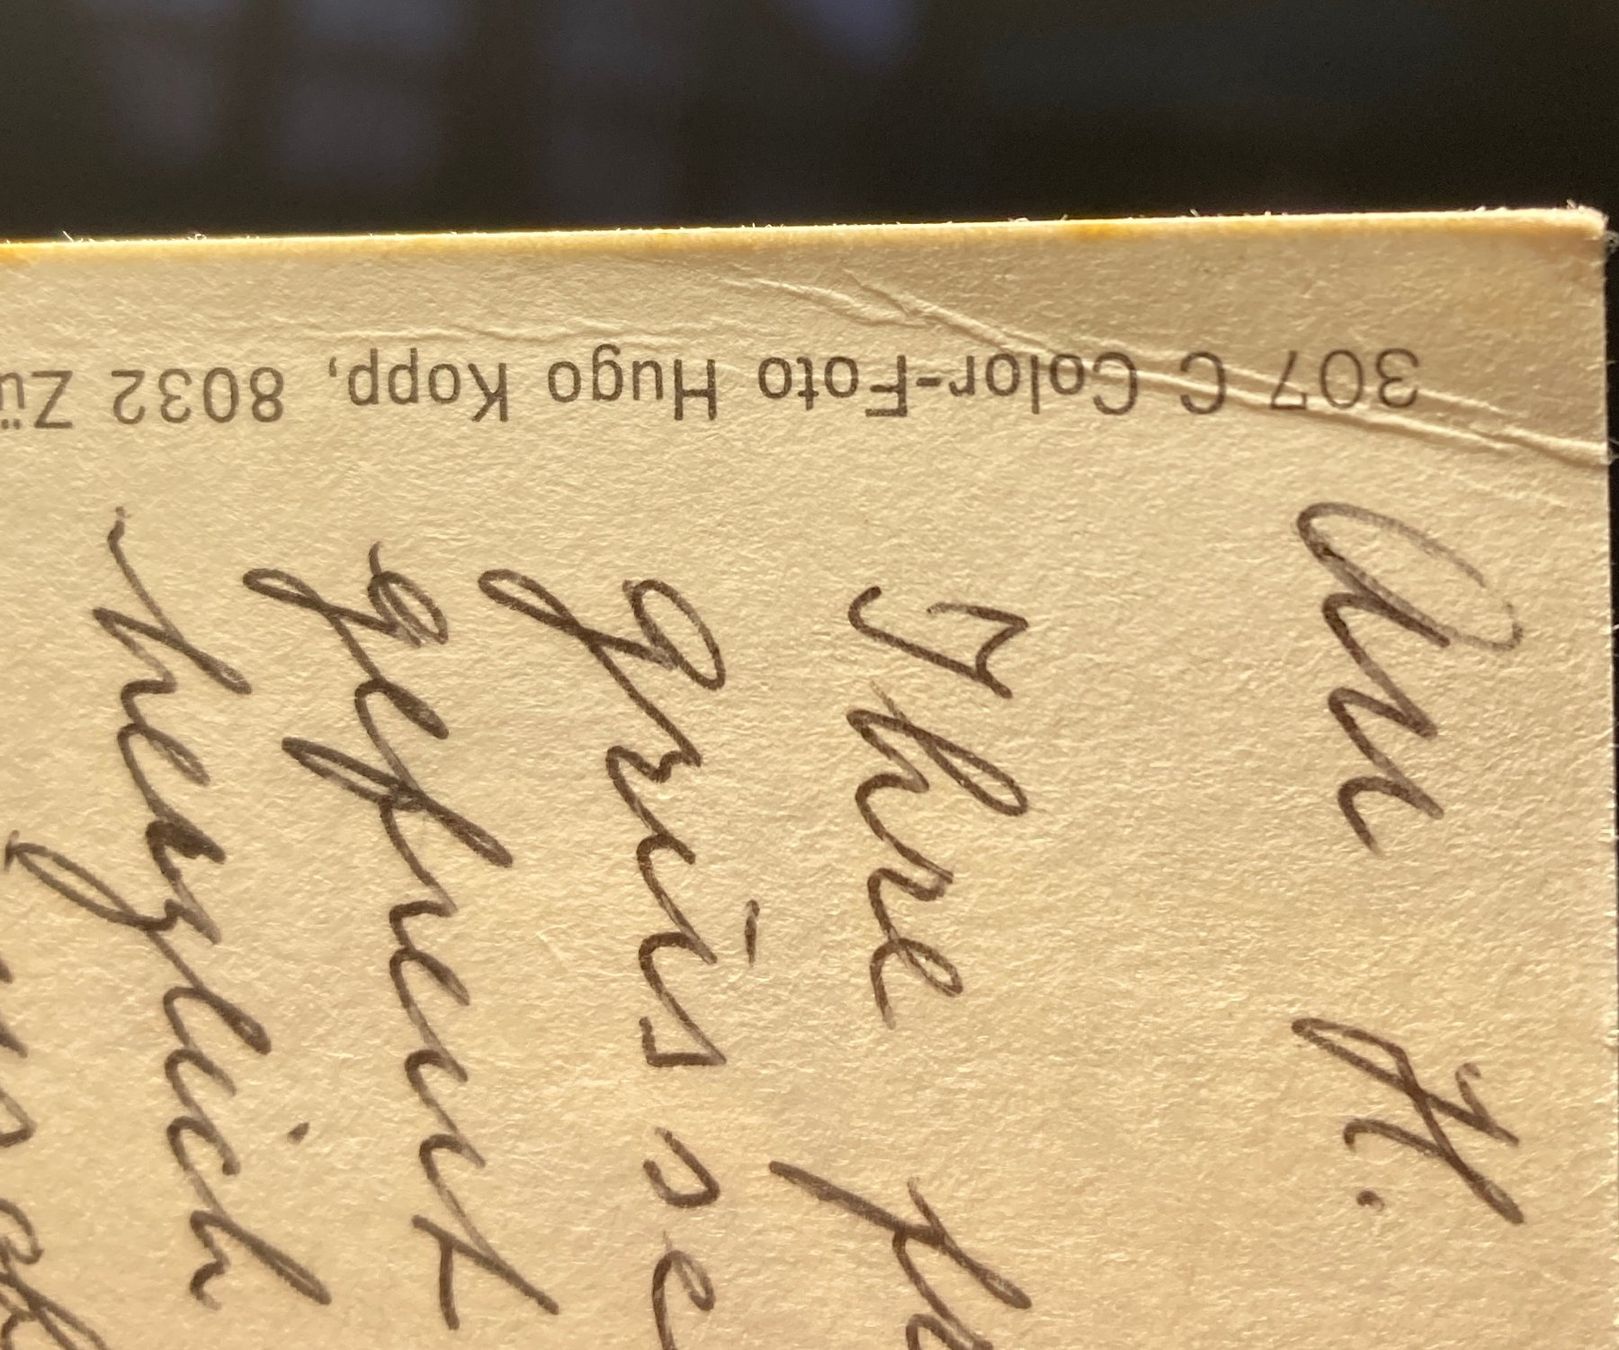 307 C Color-Foto Hugo Kopp, 8032 Zü
An H.
Ihre
Grüsse
gefreut
herzlich